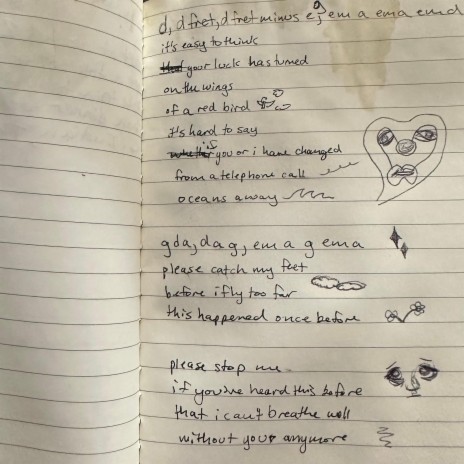 d, d fret, d fret minus e, g em a em a em d
it's easy to think
that your luck has turned
on the wings
of a red bird
it's hard to say
whether if you or i have changed
from a telephone call
oceans away
g d a, d a g, em a g em a
please catch my feet
before i fly too far
this happened once before
please stop me
if you've heard this before
that i can't breathe well
without you anymore